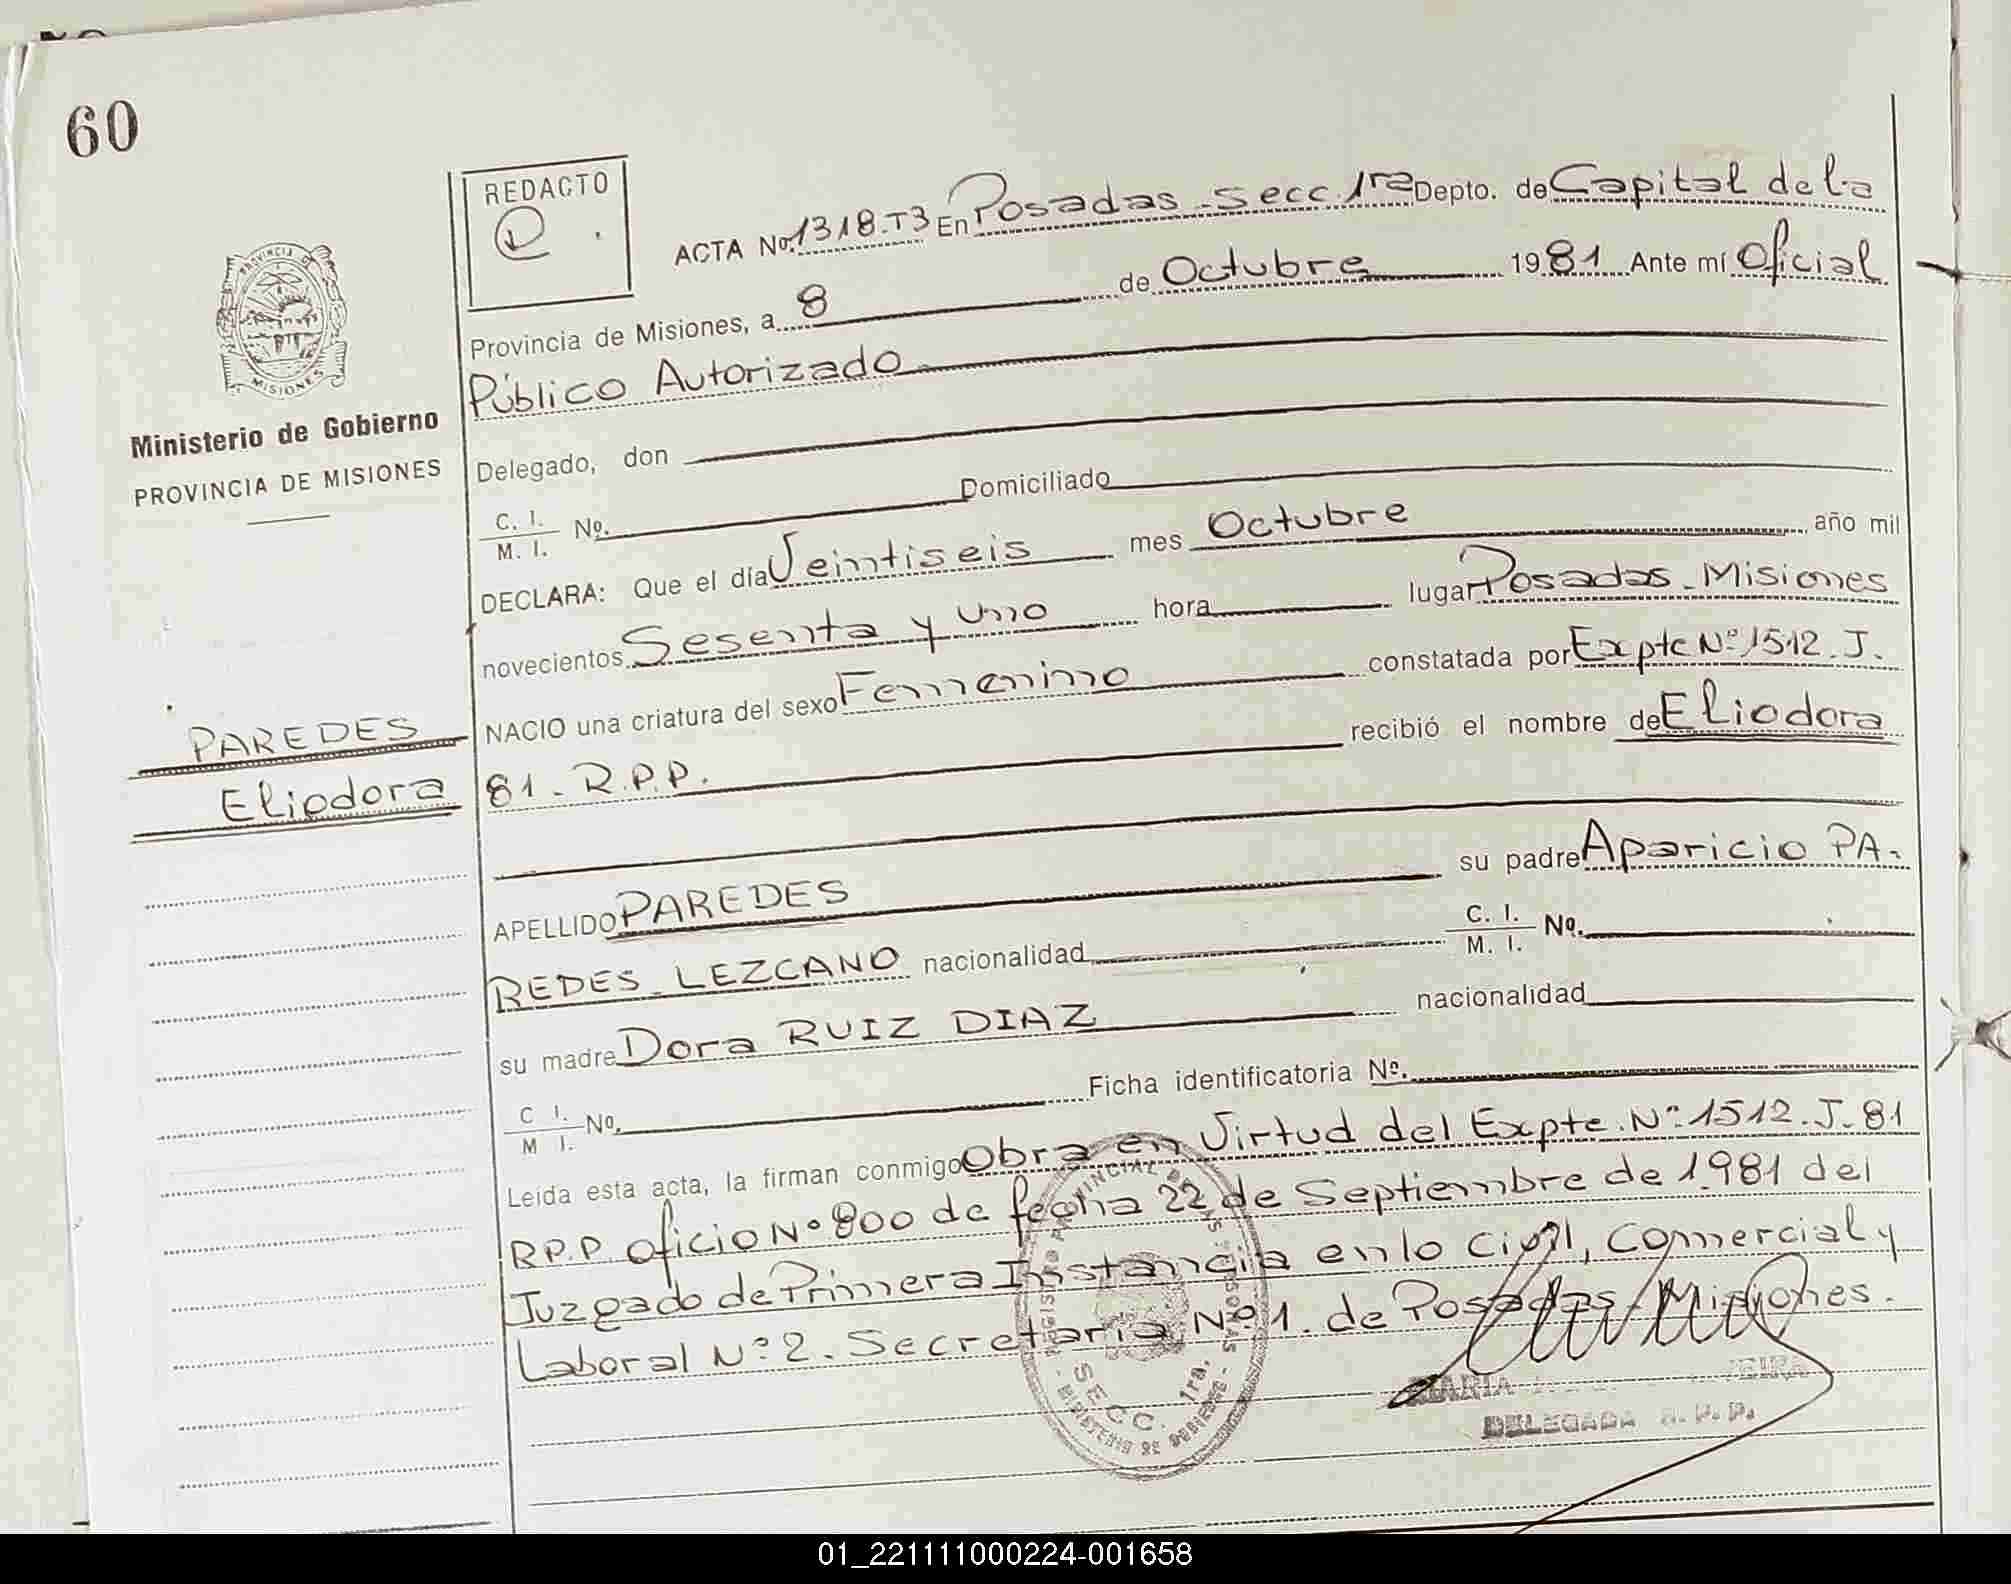 60
REDACTO
ACTA No. 1318.T3 En Posadas - secc. 1ra Depto. de Capital de la
Provincia de Misiones, a 8 de Octubre 1981 Ante mí Oficial
Público Autorizado
Delegado, don
C. I. / M. I. No. Domiciliado
DECLARA: Que el día Veintiseis mes Octubre año mil
novecientos Sesenta y uno hora lugar Posadas - Misiones
NACIO una criatura del sexo Femenino constatada por Expte Nº 1512. J.
81 - R.P.P. recibió el nombre de Eliodora
APELLIDO PAREDES su padre Aparicio PA-
REDES LEZCANO nacionalidad C. I. / M. I. No.
su madre Dora RUIZ DIAZ nacionalidad
C I. / M I. No. Ficha identificatoria Nº.
Leída esta acta, la firman conmigo Obra en Virtud del Expte. Nº 1512. J- 81
R.P.P. oficio Nº 800 de fecha 22 de Septiembre de 1.981 del
Juzgado de Primera Instancia en lo Civil, Comercial y
Laboral Nº 2. Secretaria Nº 1. de Posadas - Misiones.
PROVINCIA DE
MISIONES
Ministerio de Gobierno
PROVINCIA DE MISIONES
PAREDES
Eliodora
SECC. 1ra.
MINISTERIO DE GOBIERNO
MARIA
DELEGADA R. P. P.
01_221111000224-001658